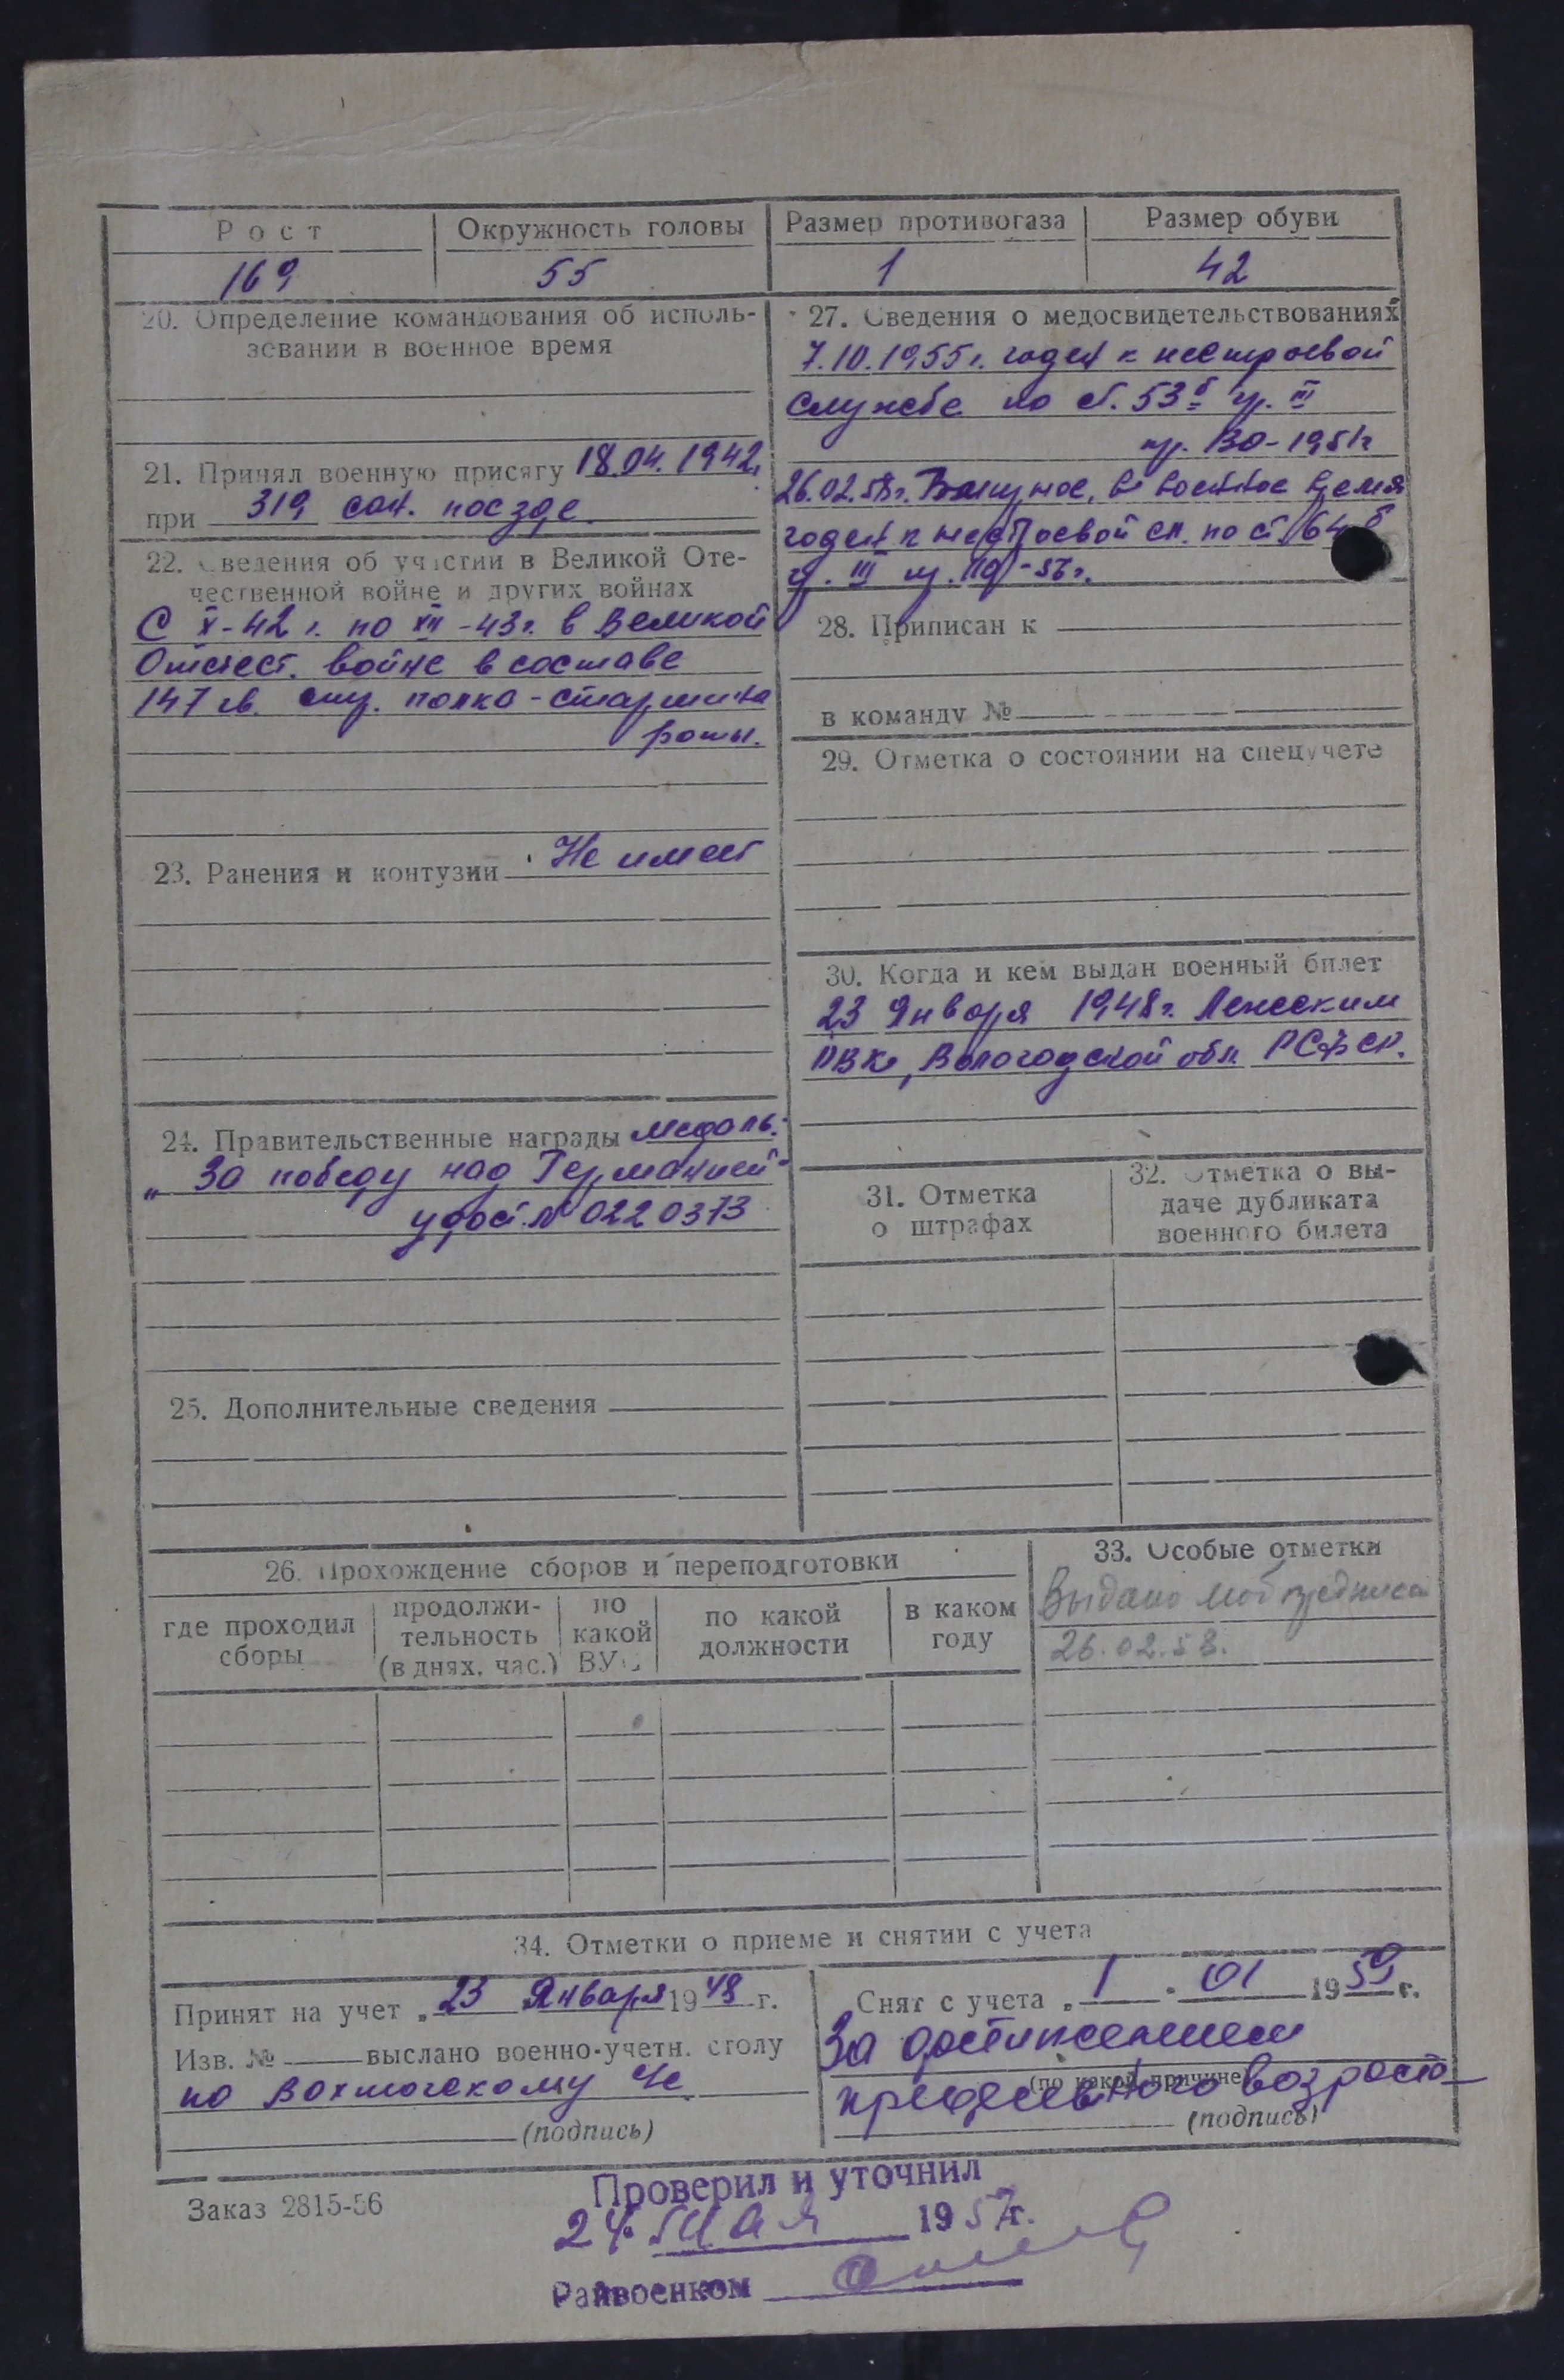 Рост
Окружность головы
Размер противогаза
Размер обуви
169
55
1
42
20. Определение командования об исполь-
зовании в военное время
21. Принял военную присягу 18.04.1942г.
при 319 сан. поезде
22. Сведения об участии в Великой Оте-
чественной войне и других войнах
С X-42 г. по XII-43г. в Великой
Отечест. войне в составе
147 гв. стр. полка - старшина
роты.
23. Ранения и контузии Не имеет
24. Правительственные награды медаль:
„За победу над Германией"
удост. № 0220373
25. Дополнительные сведения
27. Сведения о медосвидетельствованиях
7.10.1955г. годен к нестроевой
службе по ст. 53б гр. III
пр. 130-1951г
26.02.58г. в военное время
годен к нестроевой сл. по ст. 64б
гр. III пр.
28. Приписан к
в команду №
29. Отметка о состоянии на спецучете
30. Когда и кем выдан военный билет
23 Января 1948г.
РВК, Вологодской обл. РСФСР.
31. Отметка
о штрафах
32. Отметка о вы-
даче дубликата
военного билета
26. Прохождение сборов и переподготовки
где проходил
сборы
продолжи-
тельность
(в днях, час.)
по
какой
ВУС
по какой
должности
в каком
году
33. Особые отметки
Выдано мобпредписан
26.02.58.
34. Отметки о приеме и снятии с учета
Принят на учет „23 Января 1948 г.
Изв. № выслано военно-учетн. столу
по Вохтожскому
(подпись)
Снят с учета „1 . 01 1959 г.
За достижением
(по какой причине)
предельного возраста
(подпись)
Заказ 2815-56
Проверил и уточнил
24 мая 1957г.
Райвоенком